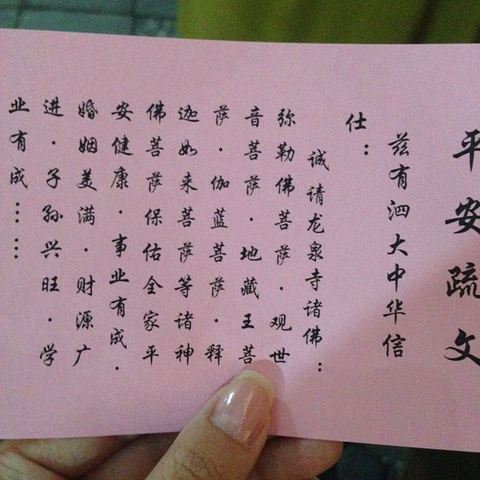 平安疏文
兹有泗大中华信
仕：
诚请龙泉寺诸佛：
弥勒佛菩萨·观世
音菩萨·地藏王菩
萨·伽蓝菩萨·释
迦如来菩萨等诸神
佛菩萨保佑全家平
安健康·事业有成·
婚姻美满·财源广
进·子孙兴旺·学
业有成……